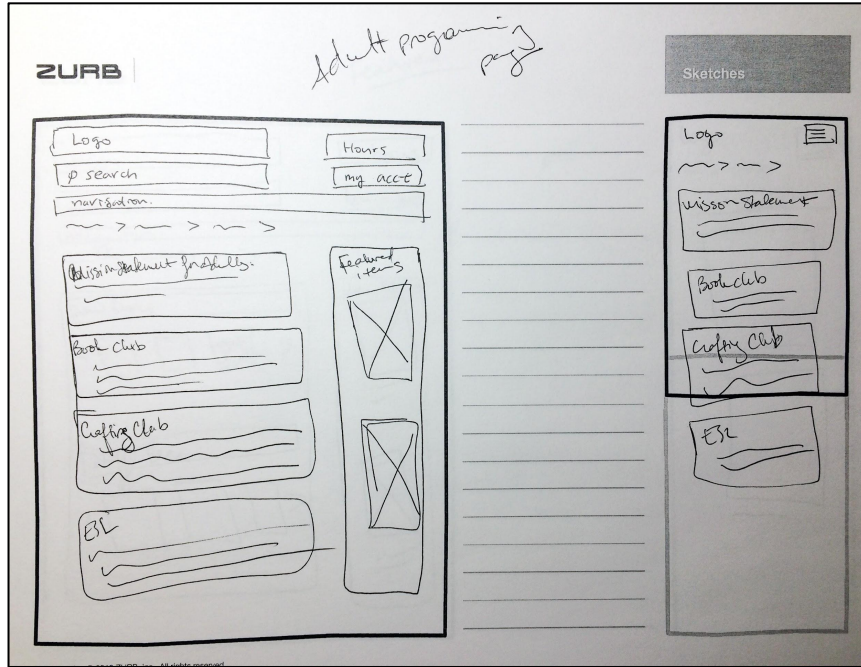 Adult programing
page
ZURB
Sketches
Logo
Hours
search
my acct
navigation.
Mission Statement for Adults.
Featured
items
Book Club
Crafting Club
ESL
Logo
Misson Statement
Book club
Crafting Club
ESL
ZURB, Inc. All rights reserved